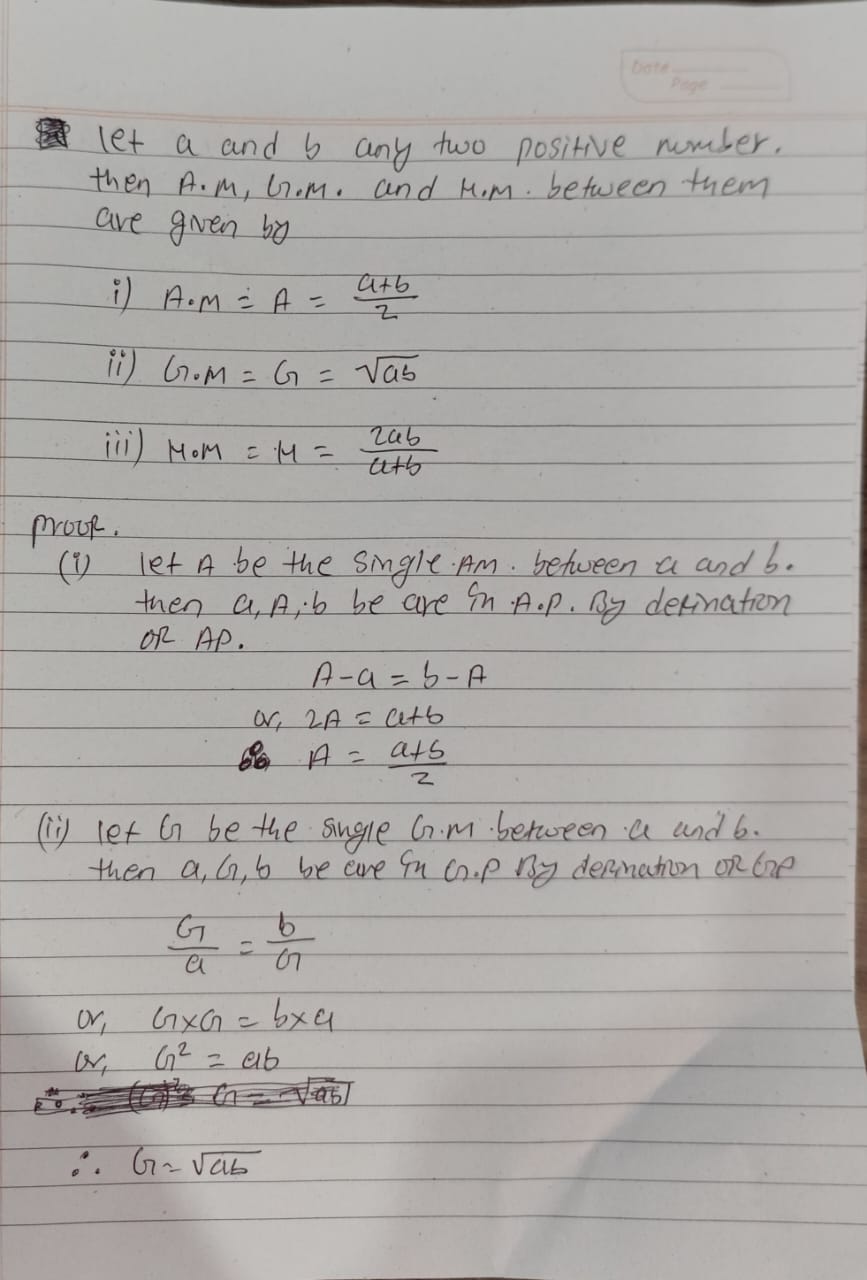 Date
Page
let a and b any two positive number.
then A.M, G.M. and H.M. between them
are given by
i) A.M = A = (a+b)/2
ii) G.M = G = √ab
iii) H.M = H = 2ab/(a+b)
proof.
(i) let A be the single AM. between a and b.
then a, A, b be are in A.P. By defination
OF AP.
A-a = b-A
or, 2A = a+b
A = (a+b)/2
(ii) let G be the single G.M between a and b.
then a, G, b be are in G.P By defination OF GP
G/a = b/G
or, G×G = b×a
or, G² = ab
∴ G = √ab